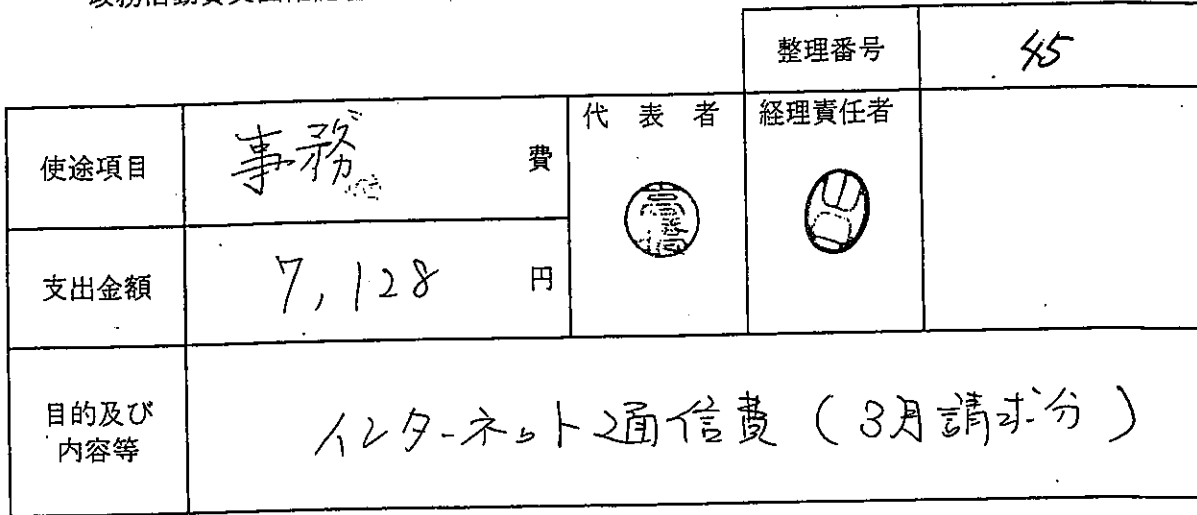 整理番号 45
使途項目 事務 費 代表者 経理責任者
支出金額 7,128 円
目的及び
内容等
インターネット通信費(3月請求分)